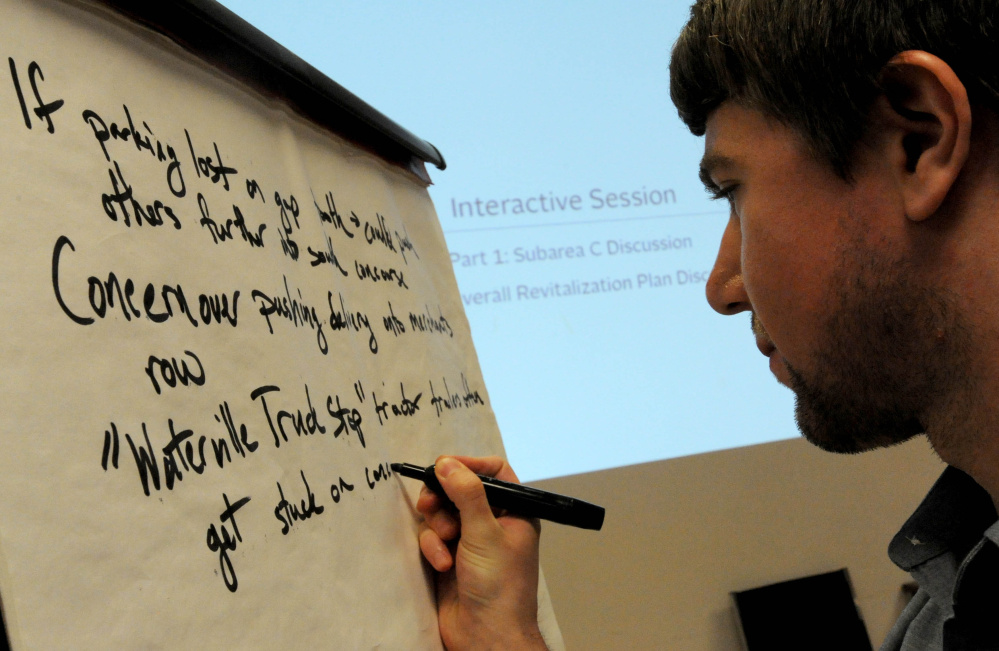 If parking lost on gap both → could push
others further into south concourse
Concern over pushing delivery into merchants
row
"Waterville Truck Stop" tractor trailers often
get stuck on conc
Interactive Session
Part 1: Subarea C Discussion
verall Revitalization Plan Disc